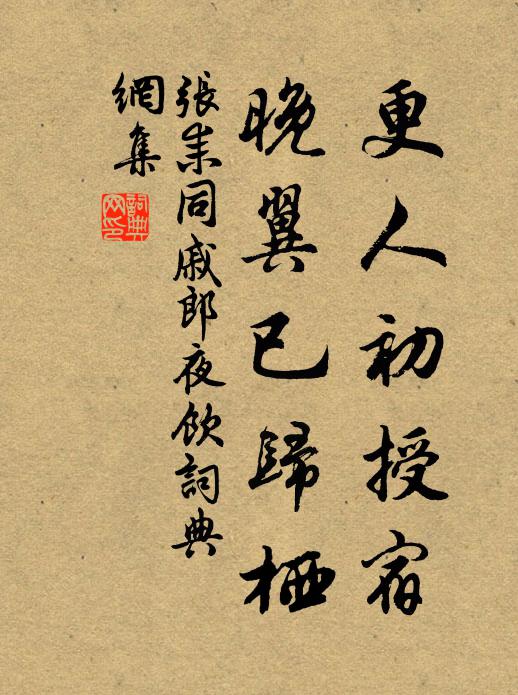 更人初授宿
晚翼已歸栖
張耒同戚郎夜飲詞典
網集
詞典
网印